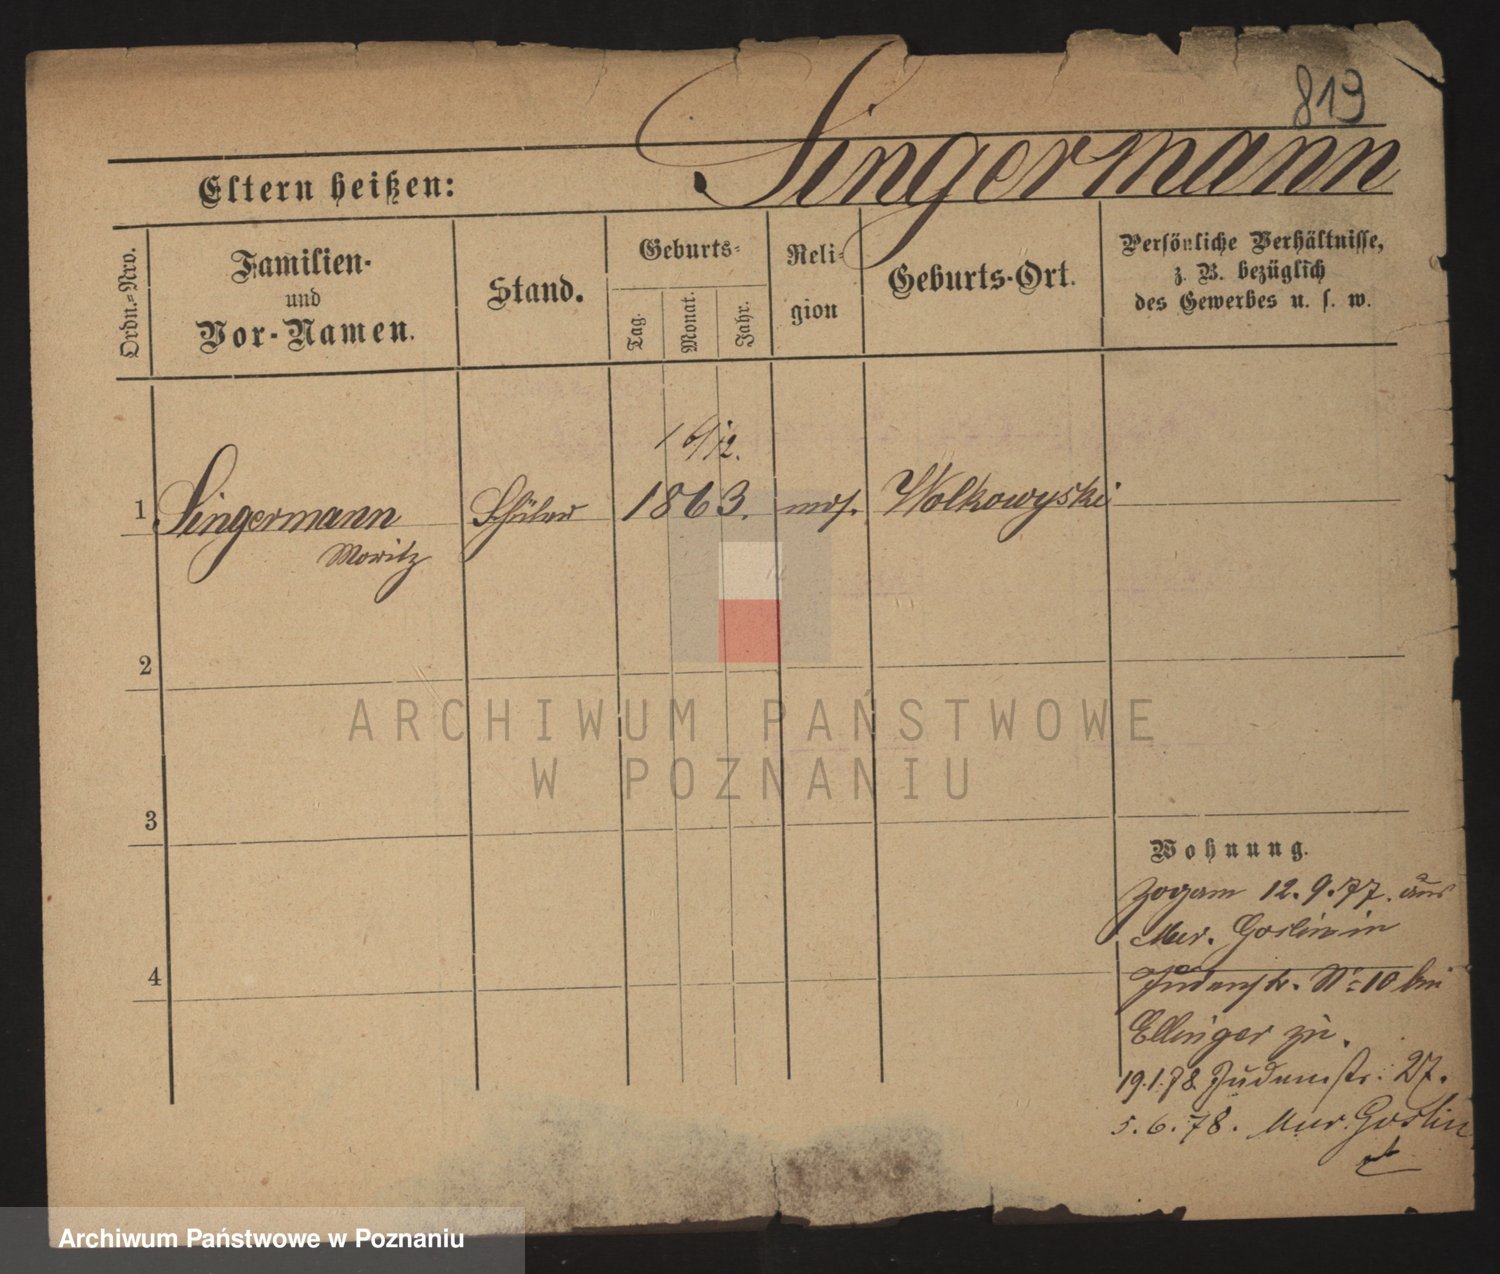 819
Singermann
Eltern heißen:
Ordn.=Nro.
Familien-
und
Vor-Namen.
Stand.
Geburts=
Tag.
Monat.
Jahr.
Reli=
gion
Geburts-Ort.
Persönliche Verhältnisse,
z. B. bezüglich
des Gewerbes u. s. w.
1 Singermann Schüler 1863. mos. Wolkowyski
Moritz
2
ARCHIWUM PAŃSTWOWE
W POZNANIU
3
Wohnung.
Zogam 12. 9. 77. aus
Mur. Goslin in
4
Judenstr. No 10 bei
Ellinger zu.
19.1.78 Judenstr. 27.
5. 6. 78. Mur. Goslin
Archiwum Państwowe w Poznaniu